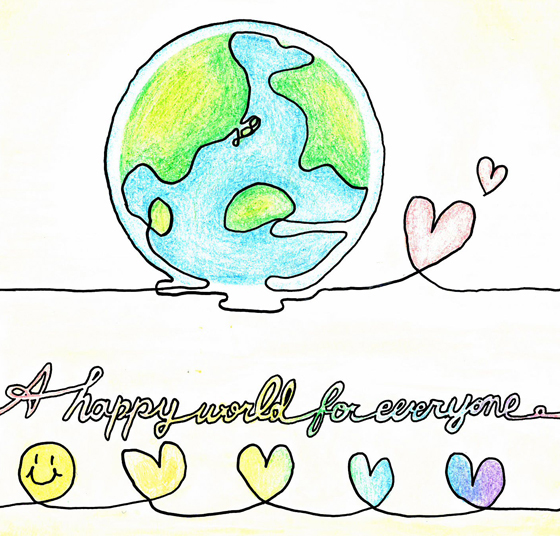 A happy world for everyone